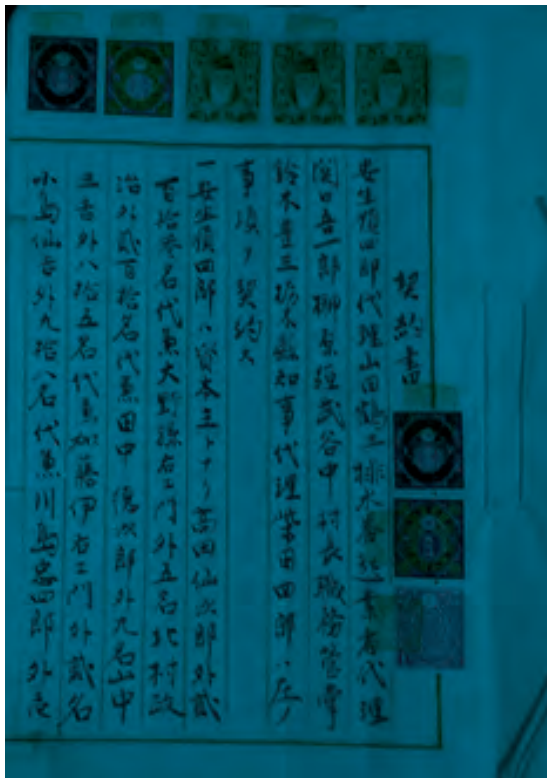 契約書
安生順四郎代理山田鶴三排水器起業者代理
関口吾一郎榊原経武谷中村長職務管掌
鈴木豊三栃木県知事代理柴田四郎ハ左ノ
事項ヲ契約ス
一安生順四郎ハ資本主トナリ高田仙次郎外貳
百拾参名代兼大野孫右エ門外五名北村政
治外貳百拾名代兼田中 外九名山中
三吉外八拾五名代兼加藤伊右エ門外貳名
小島仙吉外九拾八名代兼川島忠四郎外壱